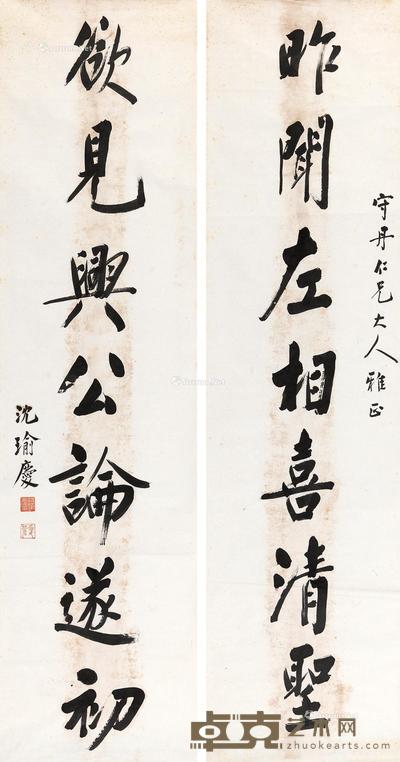 守丹仁兄大人雅正
昨聞左相喜清聖
欲見興公論遂初
沈瑜慶
卓克艺术网
zhuokearts.com